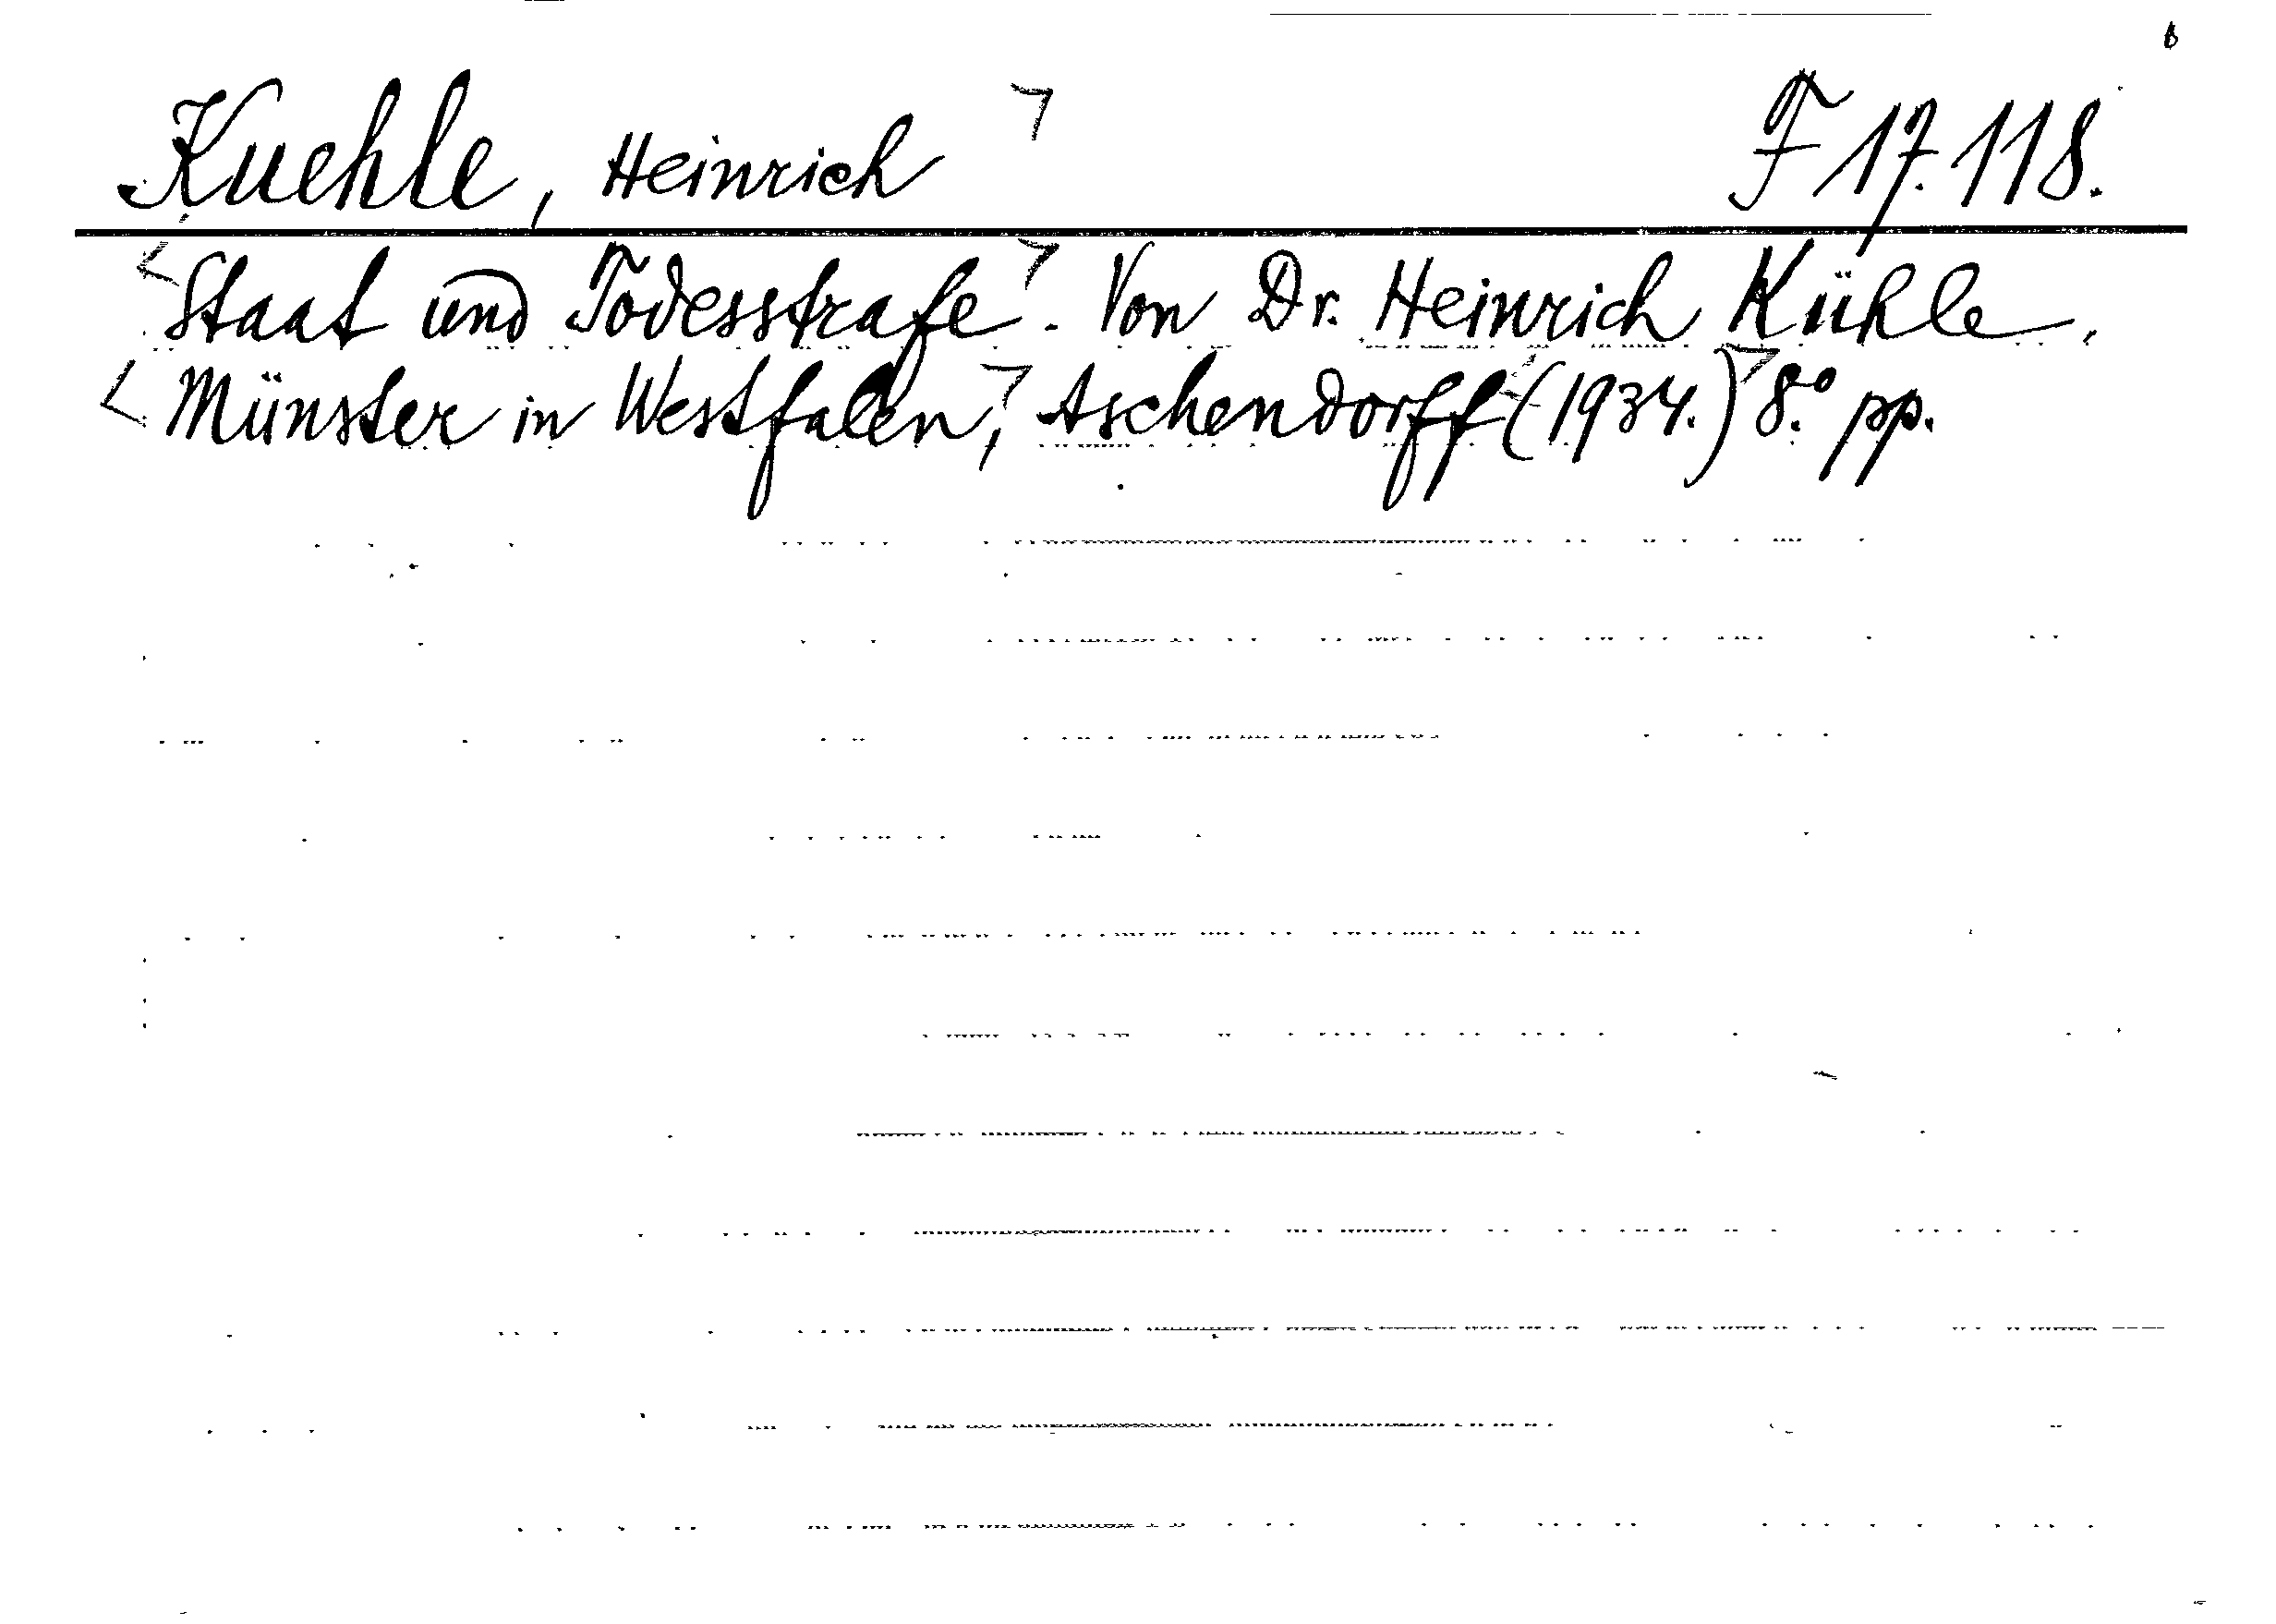 Kuehle, Heinrich F 17.118.
Staat und Todesstrafe. Von Dr. Heinrich Kühle.
Münster in Westfalen, Aschendorff (1934.) 8.º pp.